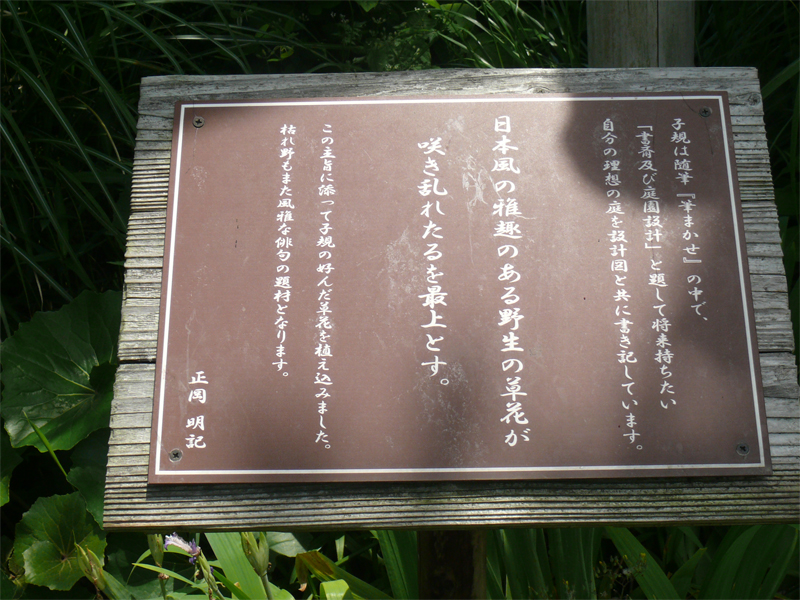 子規は随筆『筆まかせ』の中で、
「書斎及び庭園設計」と題して将来持ちたい
自分の理想の庭を設計図と共に書き記しています。
日本風の雅趣のある野生の草花が
咲き乱れたるを最上とす。
この主旨に添って子規の好んだ草花を植え込みました。
枯れ野もまた風雅な俳句の題材となります。
正岡 明記